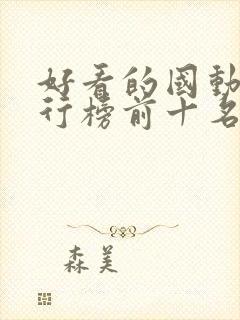 好看的國動
行榜前十名
森美